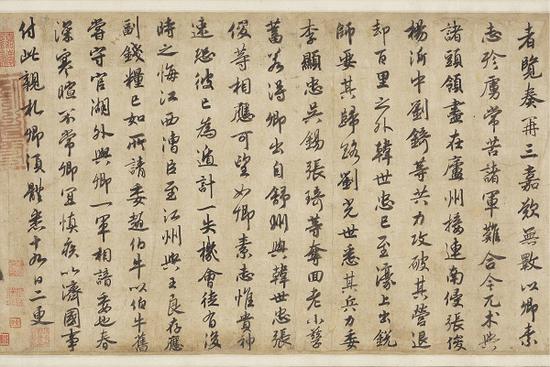 者覽奏再三嘉歎無斁以卿素
志殄虜常苦諸軍難合今兀朮與
諸頭領盡在廬州接連南侵張俊
楊沂中劉錡等共力攻破其營退
却百里之外韓世忠已至濠上出銳
師要其歸路劉光世悉其兵力委
李顯忠吳錫張琦等奪回老小孳
畜若得卿出自舒州與韓世忠張
俊等相應可望如卿素志惟貴神
速恐彼已為遁計一失機會徒有後
時之悔江西漕臣至江州與王良存應
副錢糧已如所請委趙伯牛以伯牛舊
嘗守官湖外與卿一軍相諳委也春
深寒暄不常卿宜慎疾以濟國事
付此親札卿須體悉十九日二更